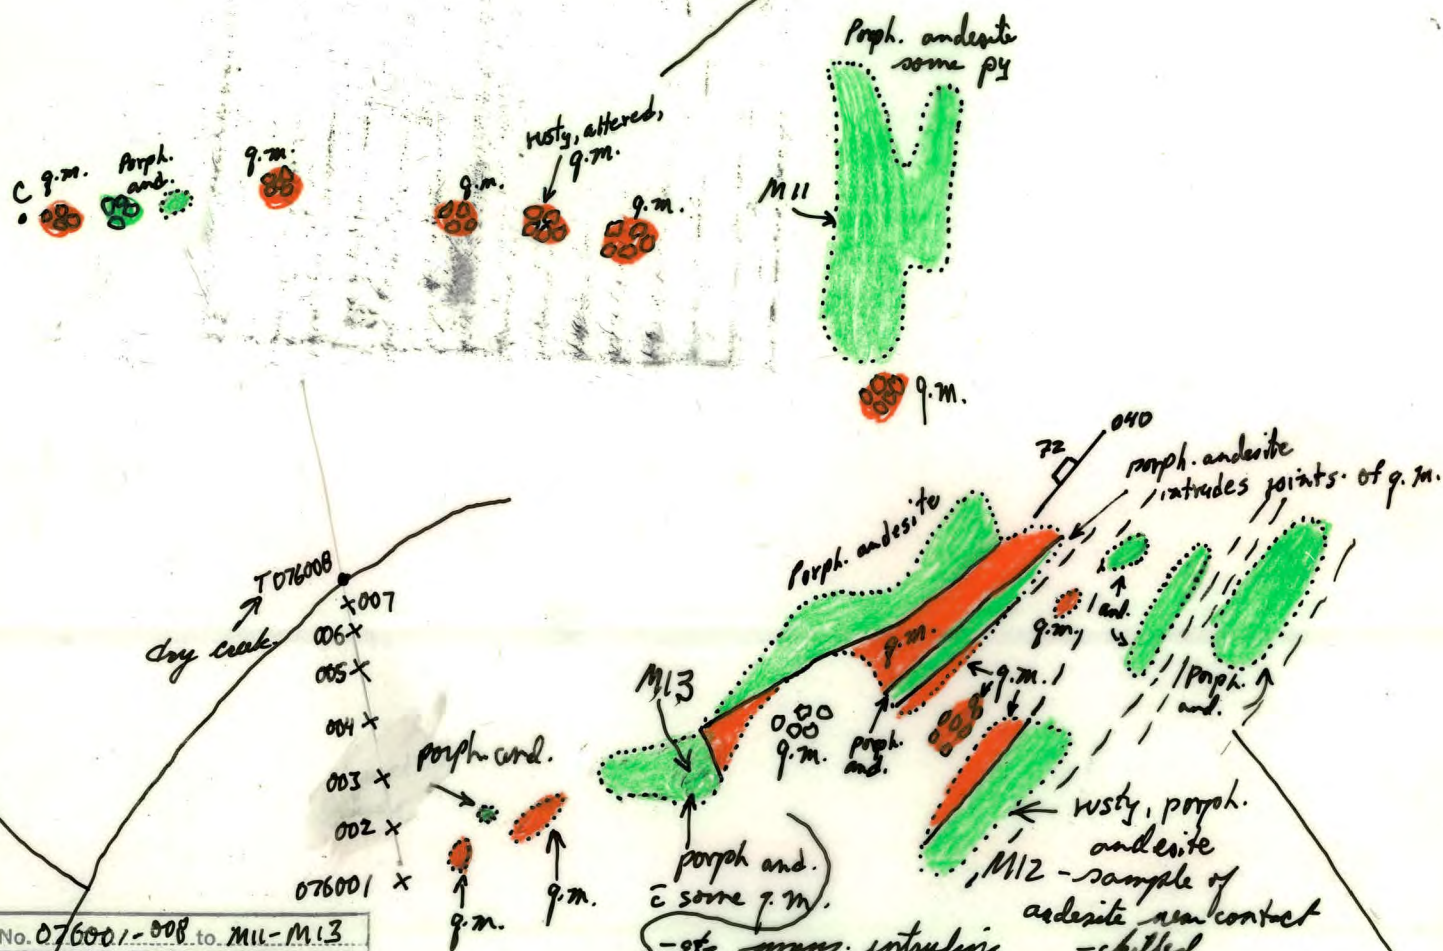 Porph. andesite
some py
rusty, altered,
q.m.
C
q.m.
Porph.
and.
q.m.
q.m.
q.m.
M11
q.m.
040
72
porph. andesite
intrudes joints of q.m.
Porph. andesite
T076008
007
dry creek
006
005
004
003
002
076001
q.m.
q.m.
and.
q.m.
Porph.
and.
M13
q.m.
porph.
and.
porph. and.
q.m.
q.m.
porph and.
c̄ some q.m.
rusty, porph.
andesite
M12 - sample of
andesite near contact
- chilled
intruding
No. 076001-008 to M11-M13